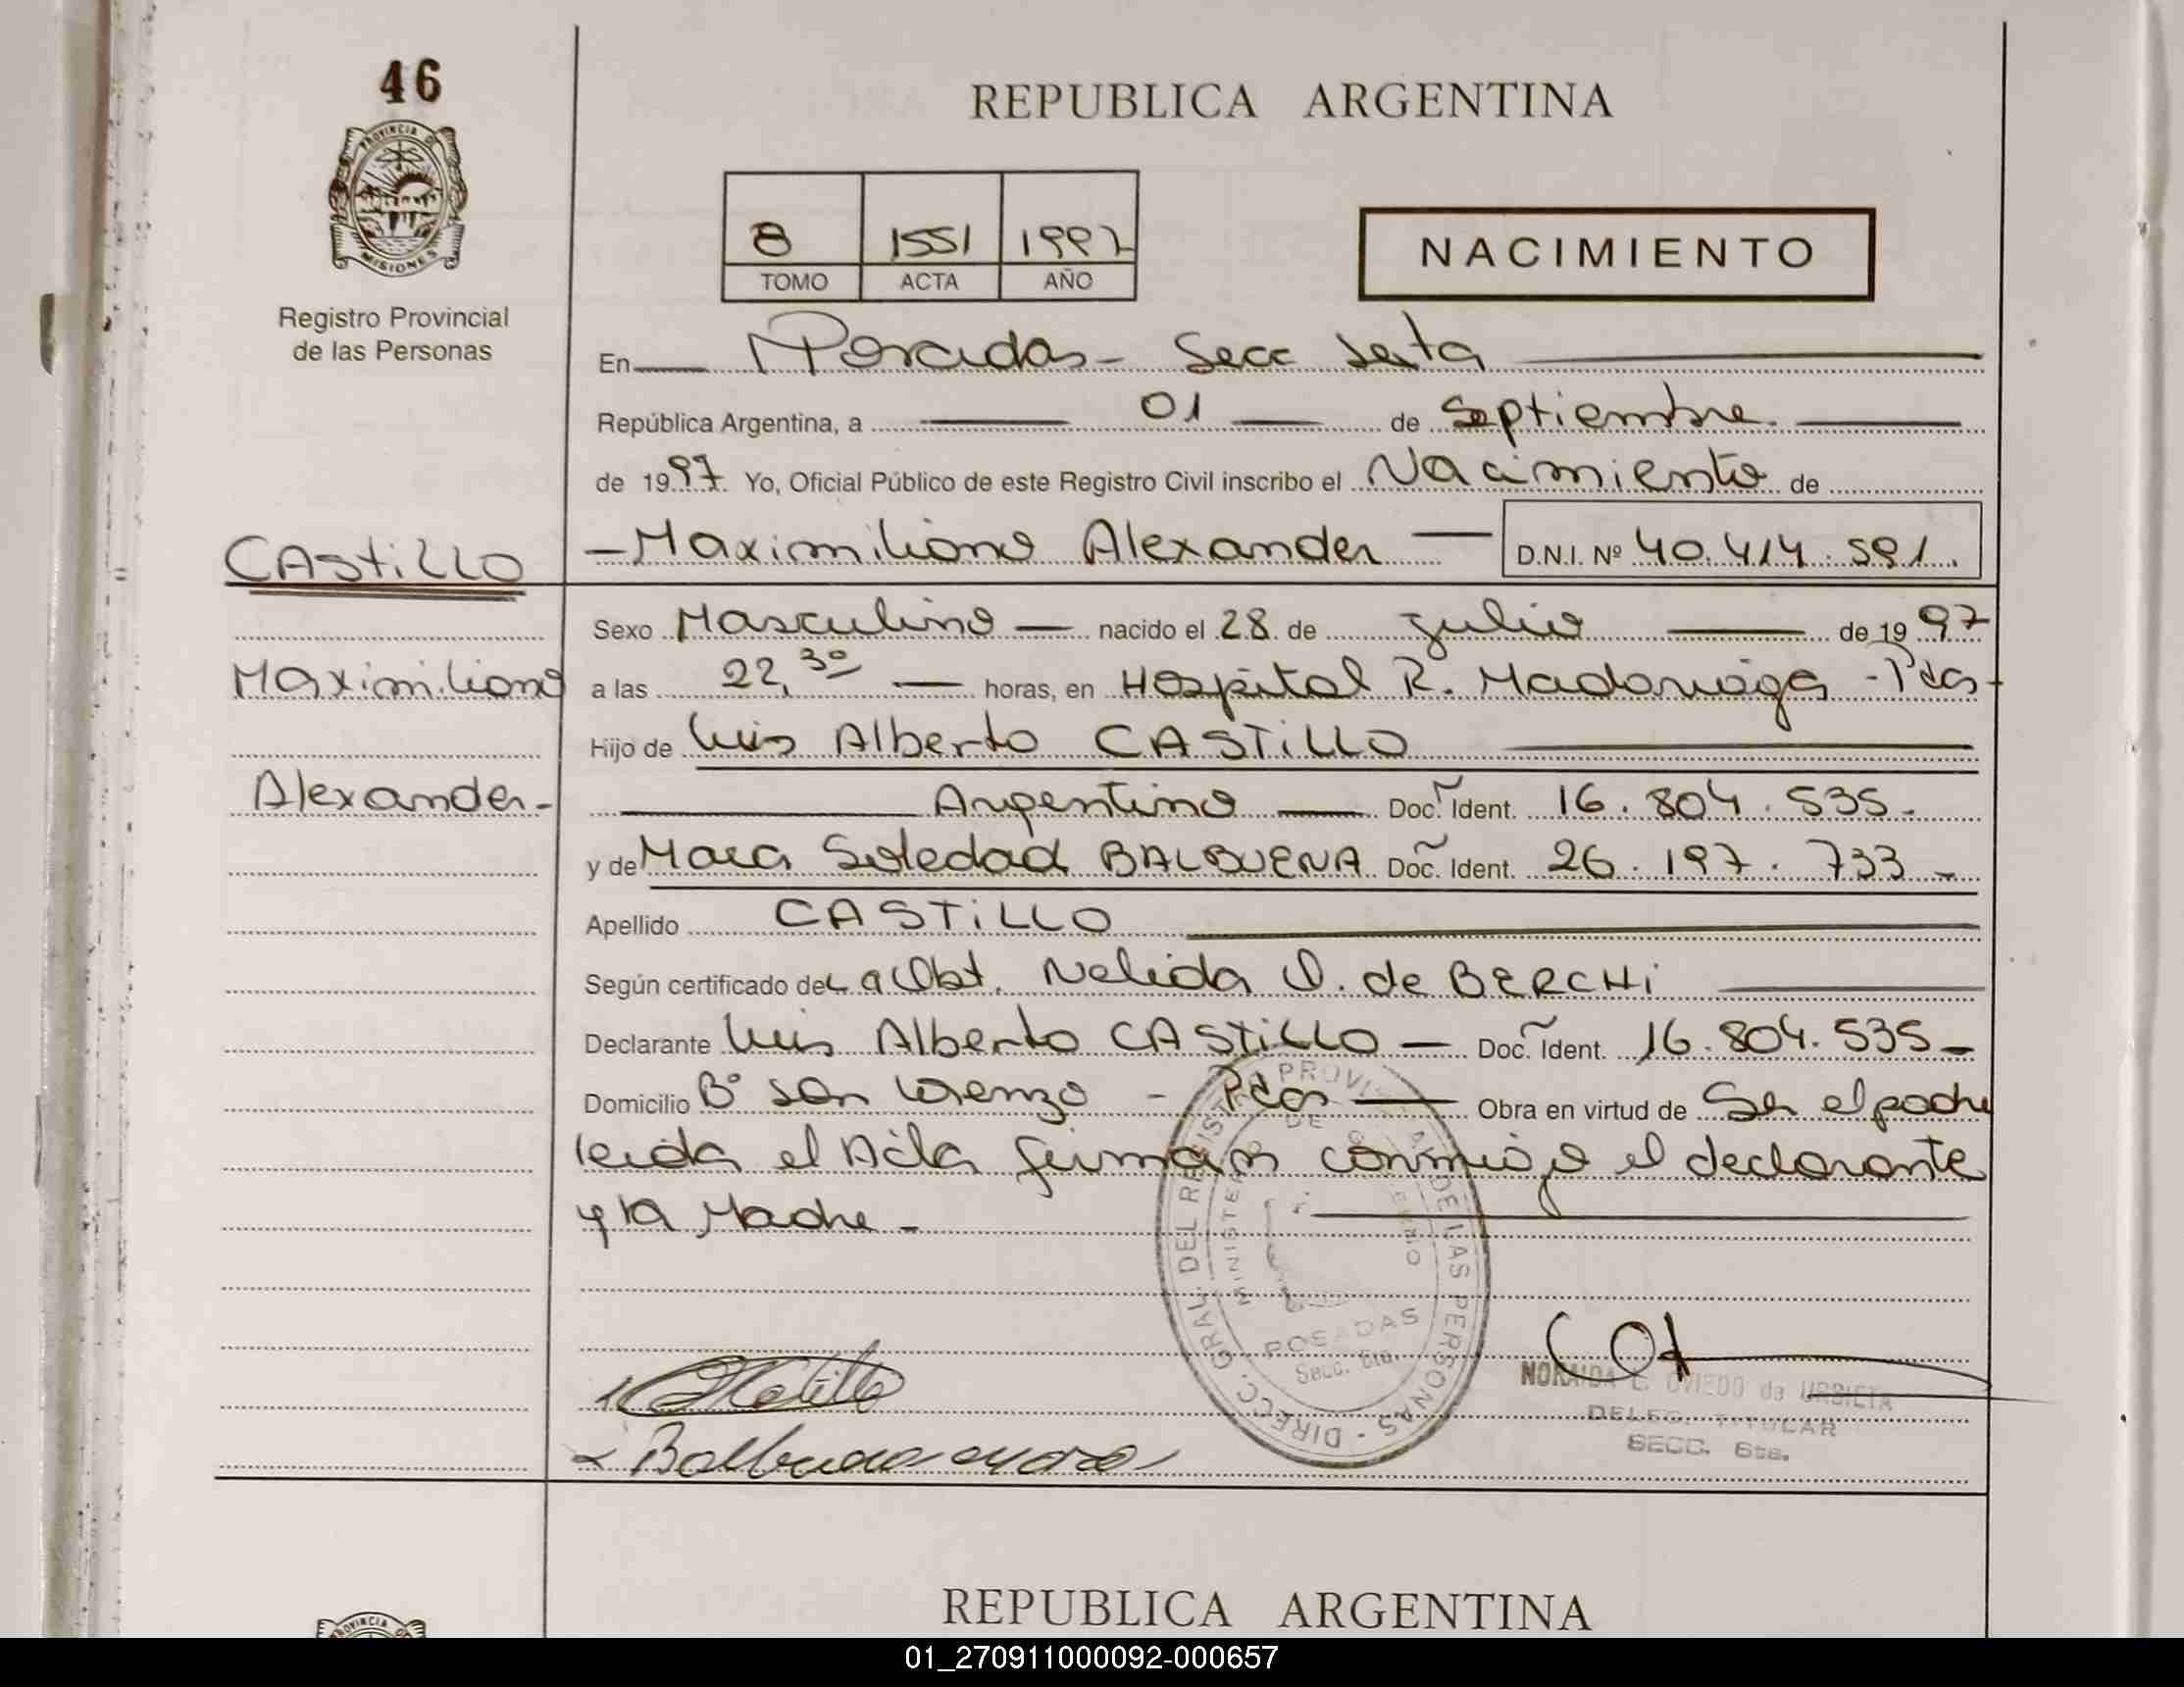 46
PROVINCIA DE
MISIONES
Registro Provincial
de las Personas
REPUBLICA ARGENTINA
8 1551 1997
TOMO ACTA AÑO
NACIMIENTO
En Posadas - Secc Sexta
República Argentina, a 01 de Septiembre
de 1997. Yo, Oficial Público de este Registro Civil inscribo el Nacimiento de
CAStiLLO
- Maximiliano Alexander - D.N.I. Nº 40.414.591.
Sexo Masculino - nacido el 28 de julio de 1997
Maximiliano
a las 22,30 - horas, en Hospital R. Madariaga - Pdas -
Hijo de Luis Alberto CASTiLLO
Alexander-
Argentino - Doc. Ident. 16.804.535.
y de Mara Soledad BALBUENA Doc. Ident. 26.197.733 -
Apellido CASTiLLO
Según certificado de La Obst. Nelida O. de BERCHi
Declarante Luis Alberto CAStiLLO - Doc. Ident. 16.804.535 -
Domicilio Bº San Lorenzo - Pdas - Obra en virtud de Ser el padre
leida el Acta firman conmigo el declarante
y la Madre -
DIRECC. GRAL. DEL REGIST PROVI DE LAS PERSONAS -
MINISTERIO DE
POSADAS
Secc. 6ta.
Balbuena Mara
NORAIDA E. OVIEDO de URBIETA
DELEG. TITULAR
SECC. 6ta.
REPUBLICA ARGENTINA
01_270911000092-000657